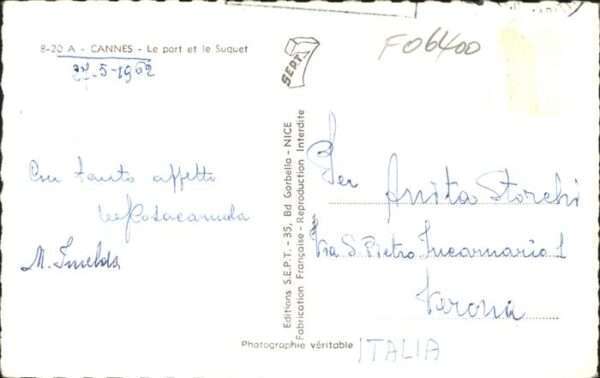 8-20 A - CANNES - Le port et le Suquet
27-5-1962
Con tanto affetto
M. Imelda
SEPT
Editions S.E.P.T. - 35, Bd Gorbella - NICE
Fabrication Française - Reproduction Interdite
Photographie véritable
F06400
Anita Storchi
Via S. Pietro Incarnario 1
Verona
ITALIA